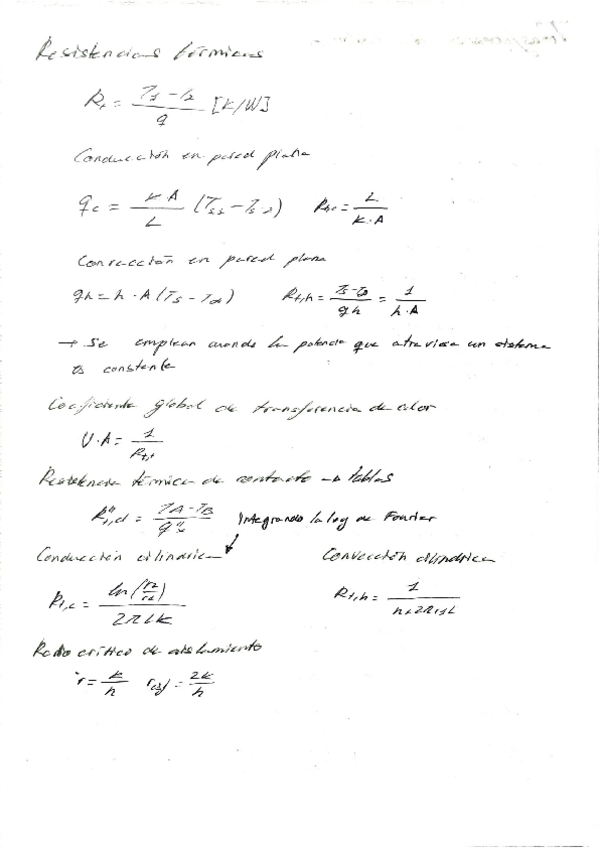 Resistencias térmicas
Rt = (T1 - T2) / q [K/W]
Conducción en pared plana
qc = (k A / L) (Ts1 - Ts2) Rt,c = L / (k · A)
Convección en pared plana
qh = h · A (Ts - T∞) Rt,h = (Ts - T∞) / qh = 1 / (h · A)
→ Se emplean cuando la potencia que atraviesa un sistema
es constante
Coeficiente global de transferencia de calor
U · A = 1 / Rt,t
Resistencia térmica de contacto → tablas
R''t,c = (TA - TB) / q''x Integrando la ley de Fourier
Conducción cilíndrica Convección cilíndrica
Rt,c = ln(r2/r1) / 2πLk Rt,h = 1 / (h · 2π r1 L)
Radio crítico de aislamiento
r = k / h r esf = 2k / h